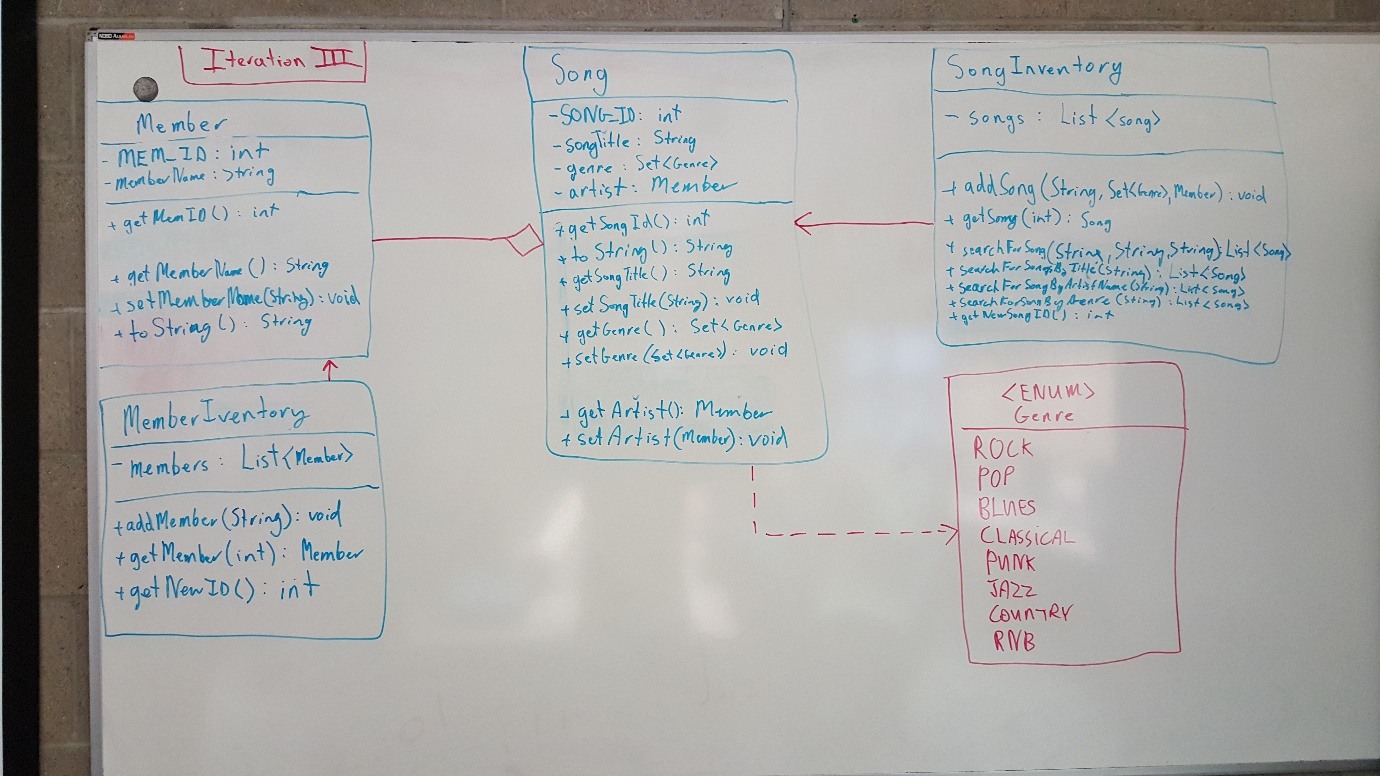 Iteration III
Member
- MEM_ID: int
- memberName: String
+ getMemID(): int
+ getMemberName(): String
+ setMemberName(String): void
+ toString(): String
MemberIventory
- members: List<Member>
+ addMember(String): void
+ getMember(int): Member
+ getNewID(): int
Song
- SONG_ID: int
- songTitle: String
- genre: Set<Genre>
- artist: Member
+ getSongId(): int
+ toString(): String
+ getSongTitle(): String
+ setSongTitle(String): void
+ getGenre(): Set<Genre>
+ setGenre(Set<Genre>): void
+ getArtist(): Member
+ setArtist(Member): void
SongInventory
- songs: List<song>
+ addSong(String, Set<Genre>, Member): void
+ getSong(int): Song
+ searchForSong(String, String, String): List<Song>
+ SearchForSongsByTitle(String): List<Song>
+ SearchForSongByArtistName(String): List<song>
+ SearchForSongByGenre(String): List<song>
+ getNewSongID(): int
<ENUM>
Genre
ROCK
POP
BLUES
CLASSICAL
PUNK
JAZZ
COUNTRY
RNB